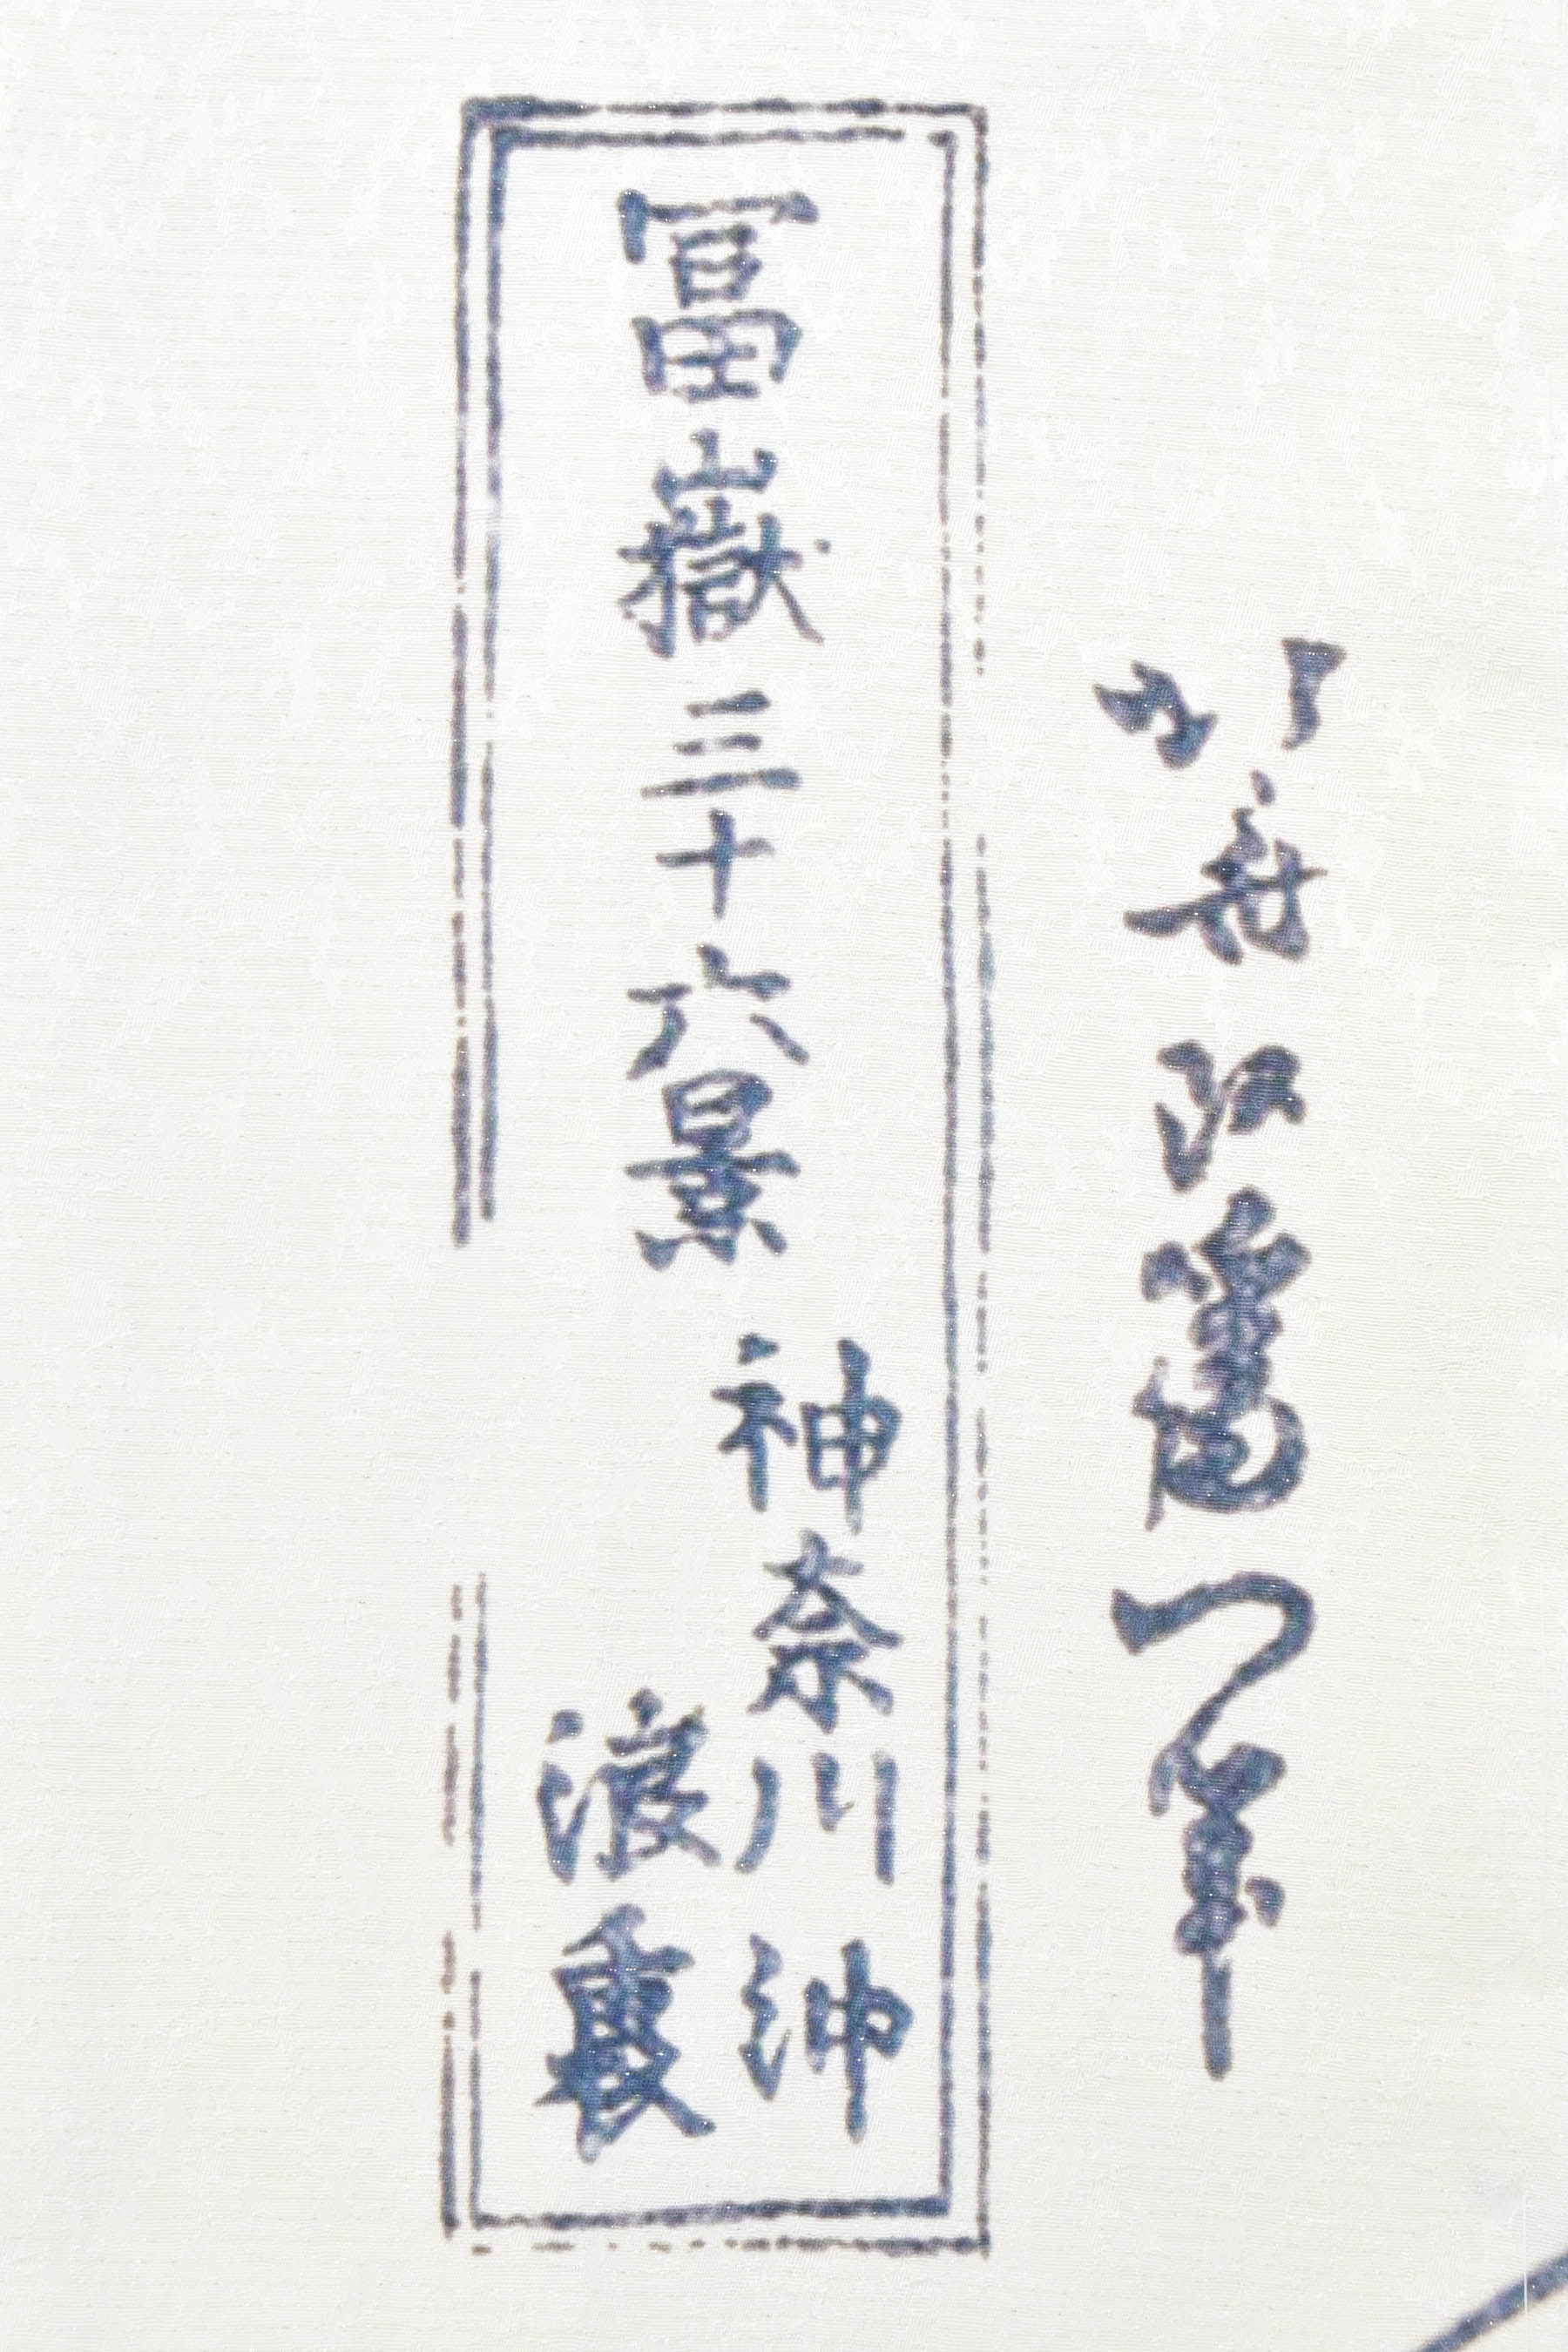 北斎改為一筆
冨嶽三十六景
神奈川沖
浪裏